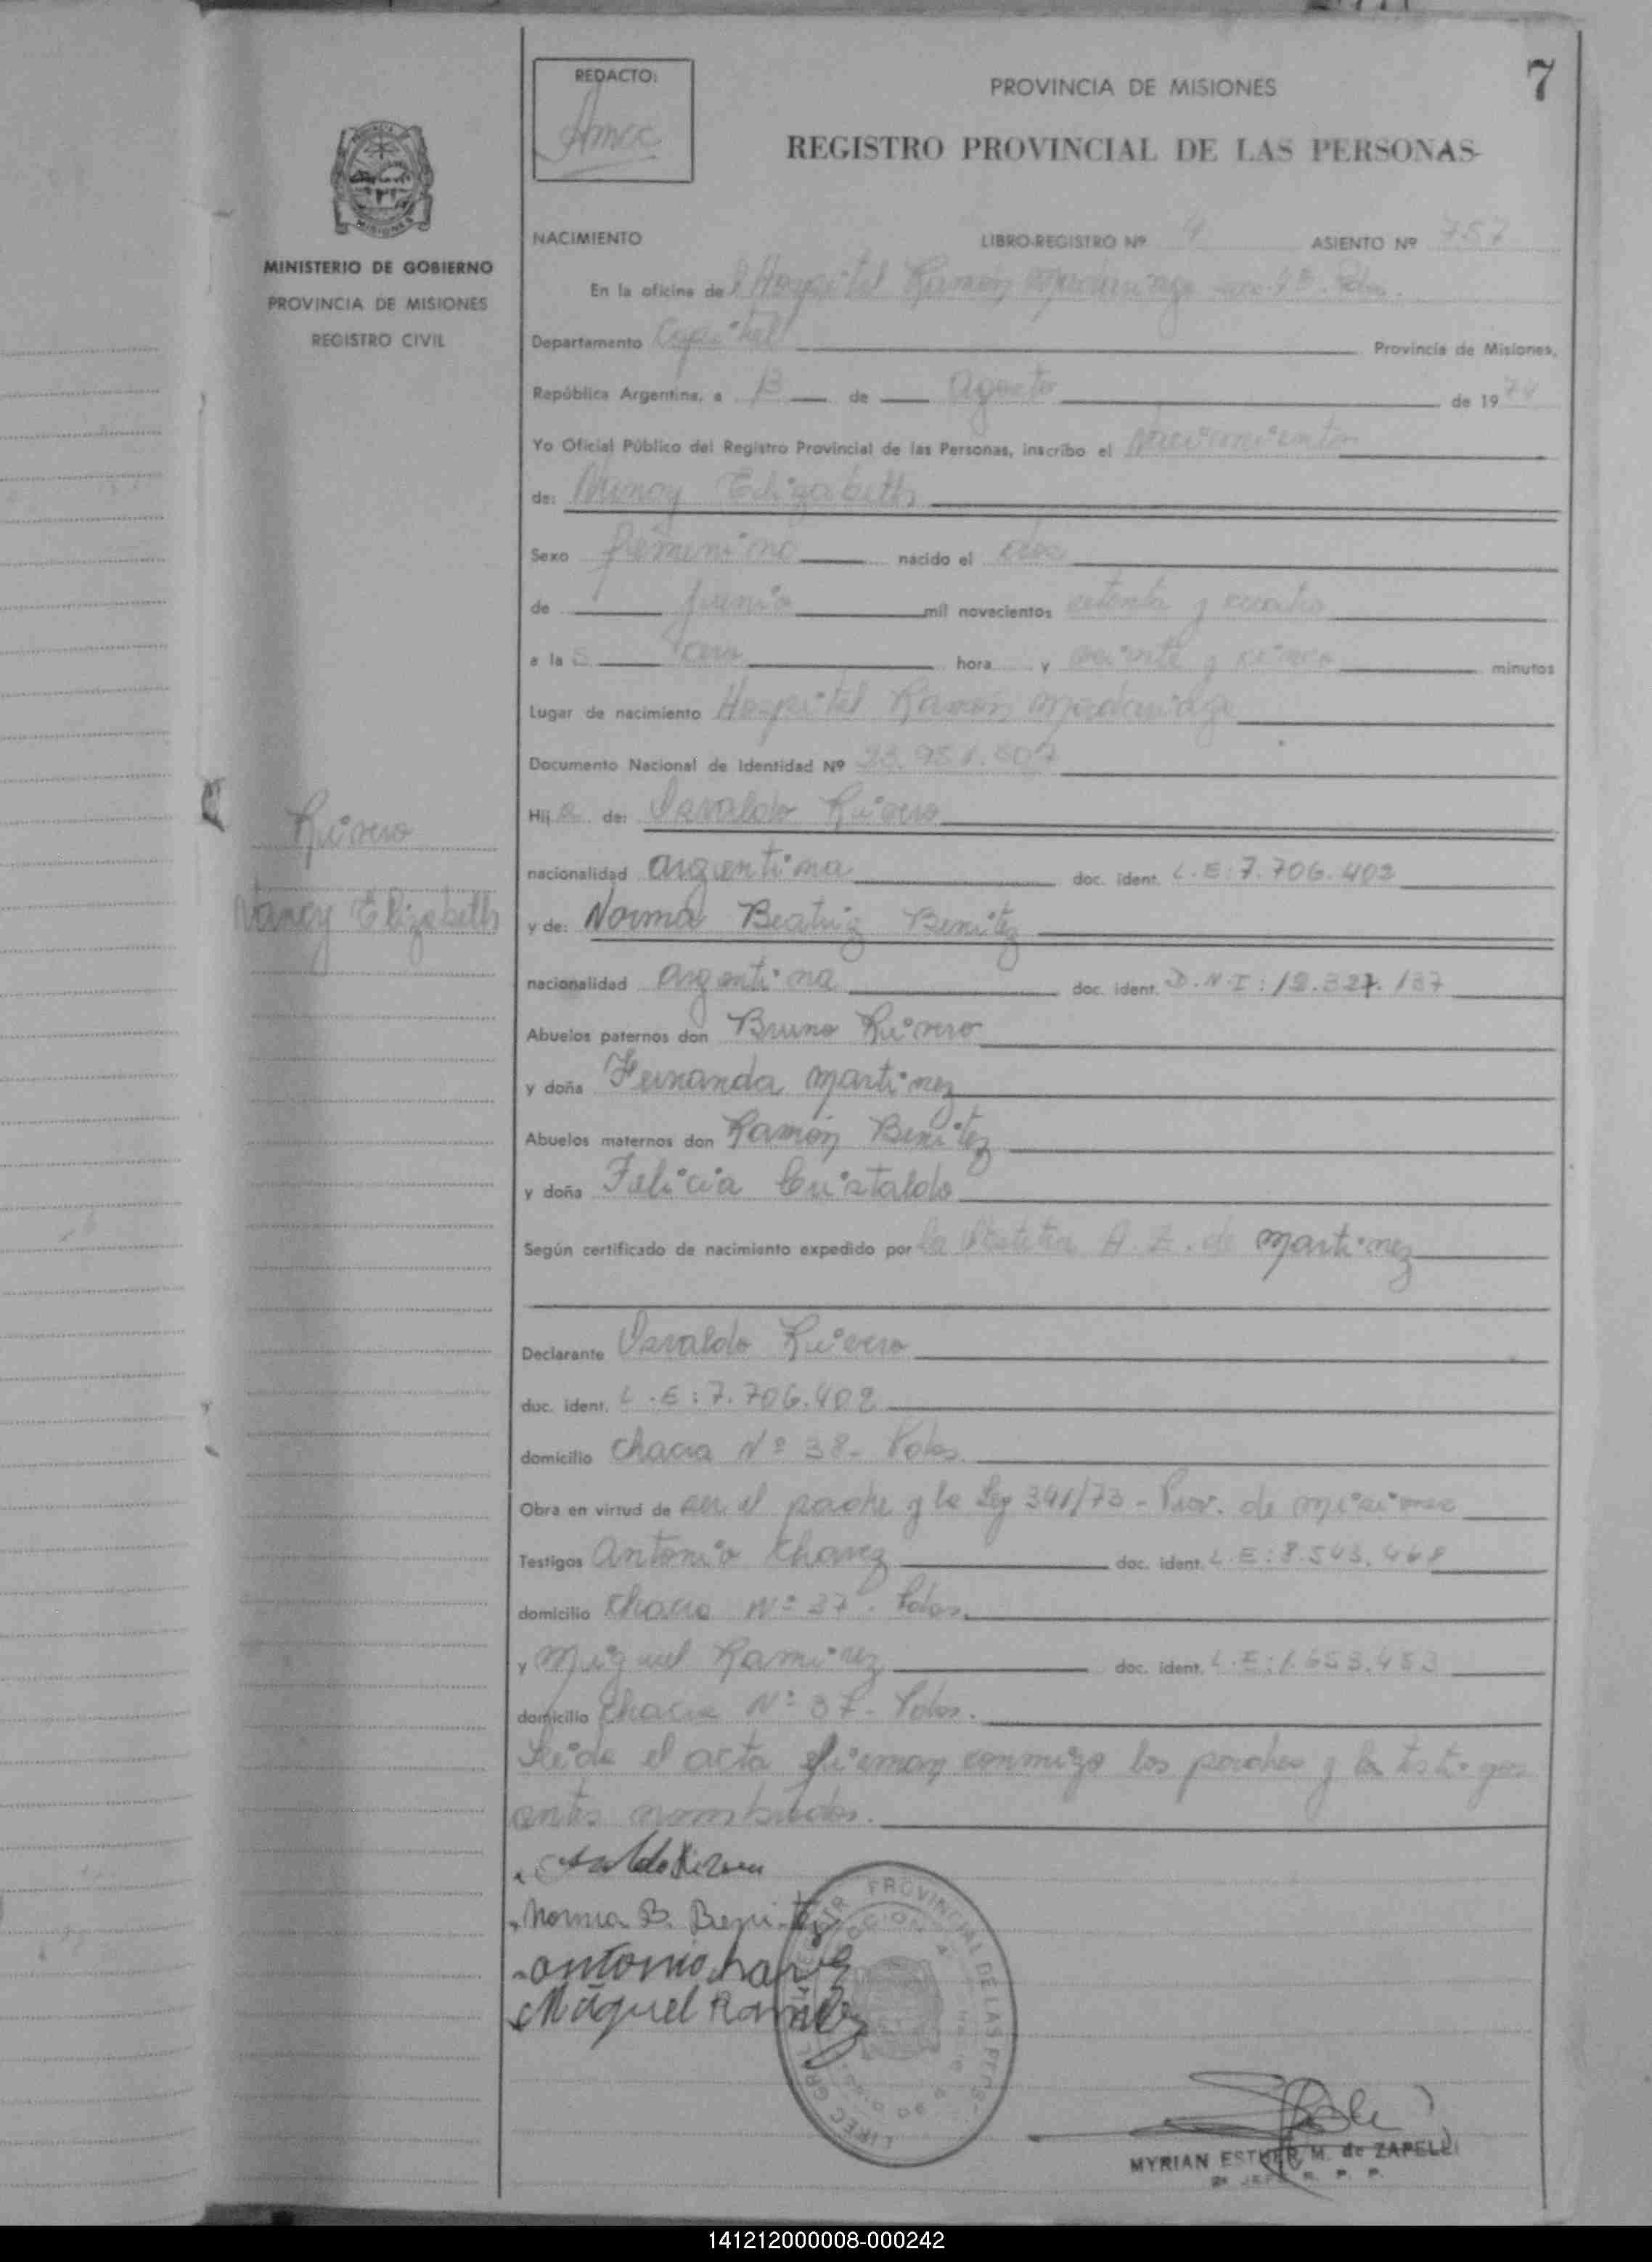 7
REDACTO:
PROVINCIA DE MISIONES
REGISTRO PROVINCIAL DE LAS PERSONAS
MISIONES
MINISTERIO DE GOBIERNO
PROVINCIA DE MISIONES
REGISTRO CIVIL
NACIMIENTO LIBRO-REGISTRO Nº 4 ASIENTO Nº 757
En la oficina del Hospital Ramón Madariaga
Departamento Capital Provincia de Misiones,
República Argentina, a 13 de agosto de 1974
Yo Oficial Público del Registro Provincial de las Personas, inscribo el Nacimiento
de: Nancy Elizabeth
Sexo femenino nacido el dos
de junio mil novecientos setenta y cuatro
a las cero hora y veinte y cinco minutos
Lugar de nacimiento Hospital Ramón Madariaga
Documento Nacional de Identidad Nº
Hija de: Osvaldo Rivero
Rivero
nacionalidad argentina doc. ident. L.E: 7.706.402
Nancy Elizabeth
y de: Norma Beatriz Benitez
nacionalidad argentina doc. ident. D.N.I: 12.327.137
Abuelos paternos don Bruno Rivero
y doña Fernanda Martinez
Abuelos maternos don Ramón Benitez
y doña Felicia Cristaldo
Según certificado de nacimiento expedido por la A. Z. de Martinez
Declarante Osvaldo Rivero
doc. ident. L.E: 7.706.402
domicilio Chacra Nº 38- Pdas.
Obra en virtud de ser el padre y la Ley 341/73 - Prov. de Misiones
Testigos Antonio Chavez doc. ident. L.E: 8.543.468
domicilio Chacra Nº 37- Pdas.
y Miguel Ramirez doc. ident. L.E: 1.653.453
domicilio Chacra Nº 37- Pdas.
Leida el acta firman conmigo los padres y los testigos
antes nombrados.
Norma B. Benitez
antonio chavez
Miguel Ramirez
PROVINCIAL DE LAS PERS.
MYRIAN ESTHER M. de ZAPELLI
JEFE R. P. P.
141212000008-000242